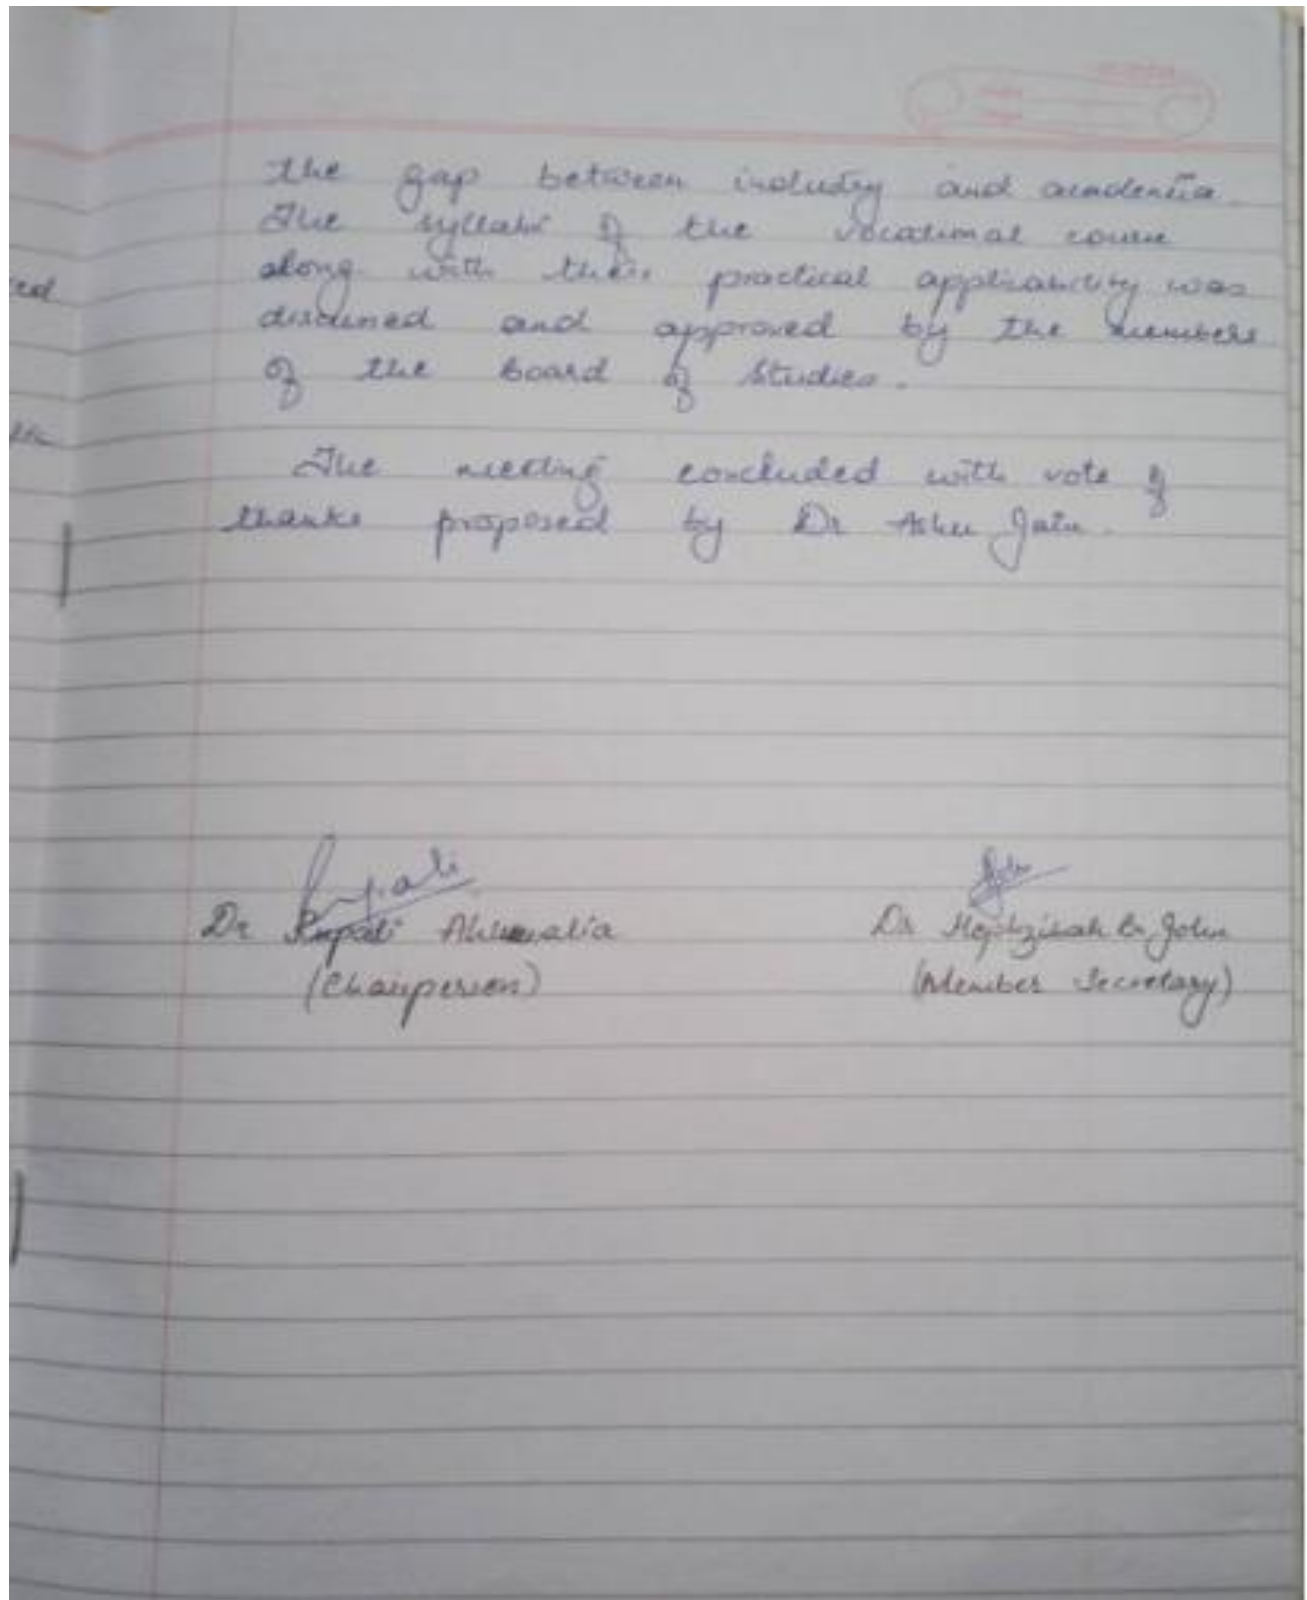 the gap between industry and academia.
The syllabi of the vocational course
along with their practical applicability was
discussed and approved by the members
of the Board of Studies.
The meeting concluded with vote of
thanks proposed by Dr Ashu Jain.
Rupali
Dr Rupali Ahluwalia
Dr John
(Chairperson)
(Member Secretary)
ed